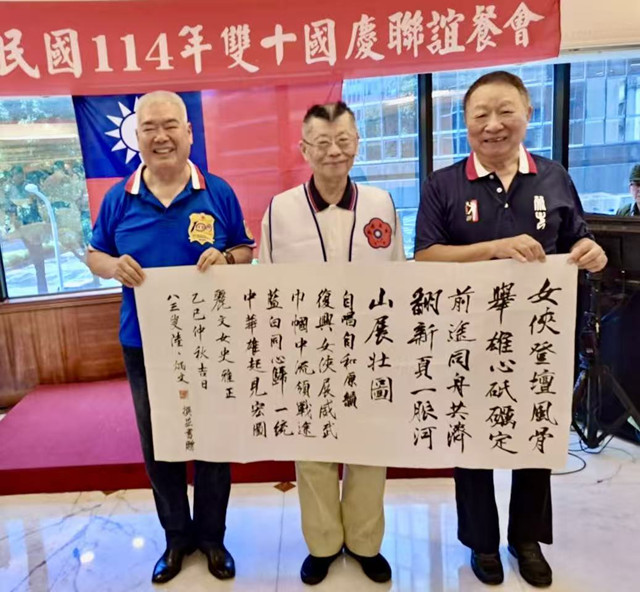 民國114年雙十國慶聯誼餐會
女俠登壇風骨
舉雄心砥礪定
前途同舟共濟
翻新頁一脈河
山展壯圖
自唱自和原韻
復興女俠展威武
巾幗中流領戰途
藍白同心歸一統
中華雄起見宏圖
麗文女史雅正
乙巳仲秋吉日
八三叟陸炳文 撰並書贈